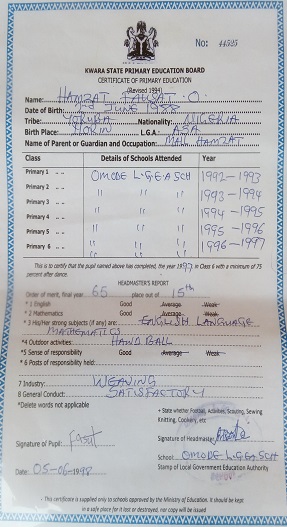 No: 44525
KWARA STATE PRIMARY EDUCATION BOARD
CERTIFICATE OF PRIMARY EDUCATION
(Revised 1994)
Name: HAMZAT FAUSAT . O .
Date of Birth: 2nd JUNE 1988
Tribe: YORUBA Nationality: NIGERIA
Birth Place: ILORIN L.G.A: ASA
Name of Parent or Guardian and Occupation: MALL HAMZAT
Class Details of Schools Attended Year
Primary 1 .. .. OMODE L.G.E.A SCH 1992-1993
Primary 2 .. .. " " " 1993-1994
Primary 3 .. .. " " " 1994-1995
Primary 4 .. .. " " " 1995-1996
Primary 5 .. .. " " " 1996-1997
Primary 6 .. .. " " "
This is to certify that the pupil named above has completed, the year 1997 in Class 6 with a minimum of 75
percent attendance.
HEADMASTER'S REPORT
Order of merit, final year 65 place out of 15th
* 1 English Good Average Weak
* 2 Mathematics Good Average Weak
* 3 His/Her strong subjects (if any) are: ENGLISH LANGUAGE
MATHEMATICS
*4 Outdoor activities: HAND BALL
*5 Sense of responsibility Good Average Weak
* 6 Posts of responsibility held:
7 Industry: WEAVING
8 General Conduct: SATISFACTORY
*Delete words not applicable
* State whether Football, Athletics, Scouting, Sewing
Knitting, Cookery, etc
Signature of Pupil: Fasut
Signature of Headmaster:
School: OMODE L.G.E.A SCH
Stamp of Local Government Education Authority
Date: 05-06-1998
- This certificate is supplied only to schools approved by the Ministry of Education. It should be kept
in a safe place for if lost or destroyed, nor copy will be issued